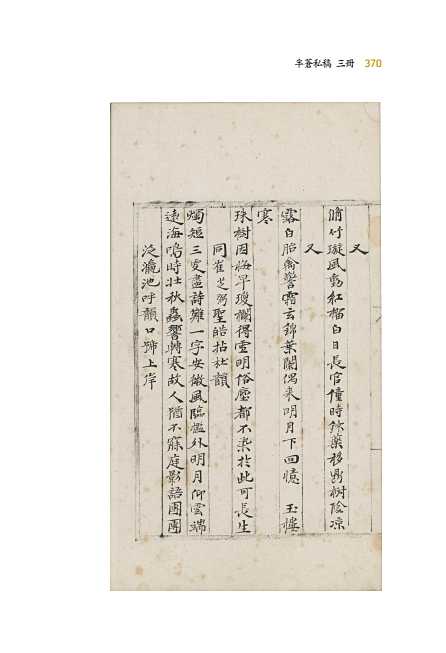 半蒼私稿 三冊 370
又
脩竹凝風亂紅榴白日長官僮時餘藥移鼎樹陰凉
又
露白胎禽警霜玄錦葉闌偶來明月下回憶玉樓
寒
珠樹因梅早瓊欄得雪明俗塵都不染於此可長生
同崔芝弼聖皓拈杜韻
燭短三更盡詩難一字安微風臨檻外明月仰雲端
遠海鳴時壯秋蟲響轉寒故人猶不寐庭影語團團
泛瀛池呼韻口號上岸